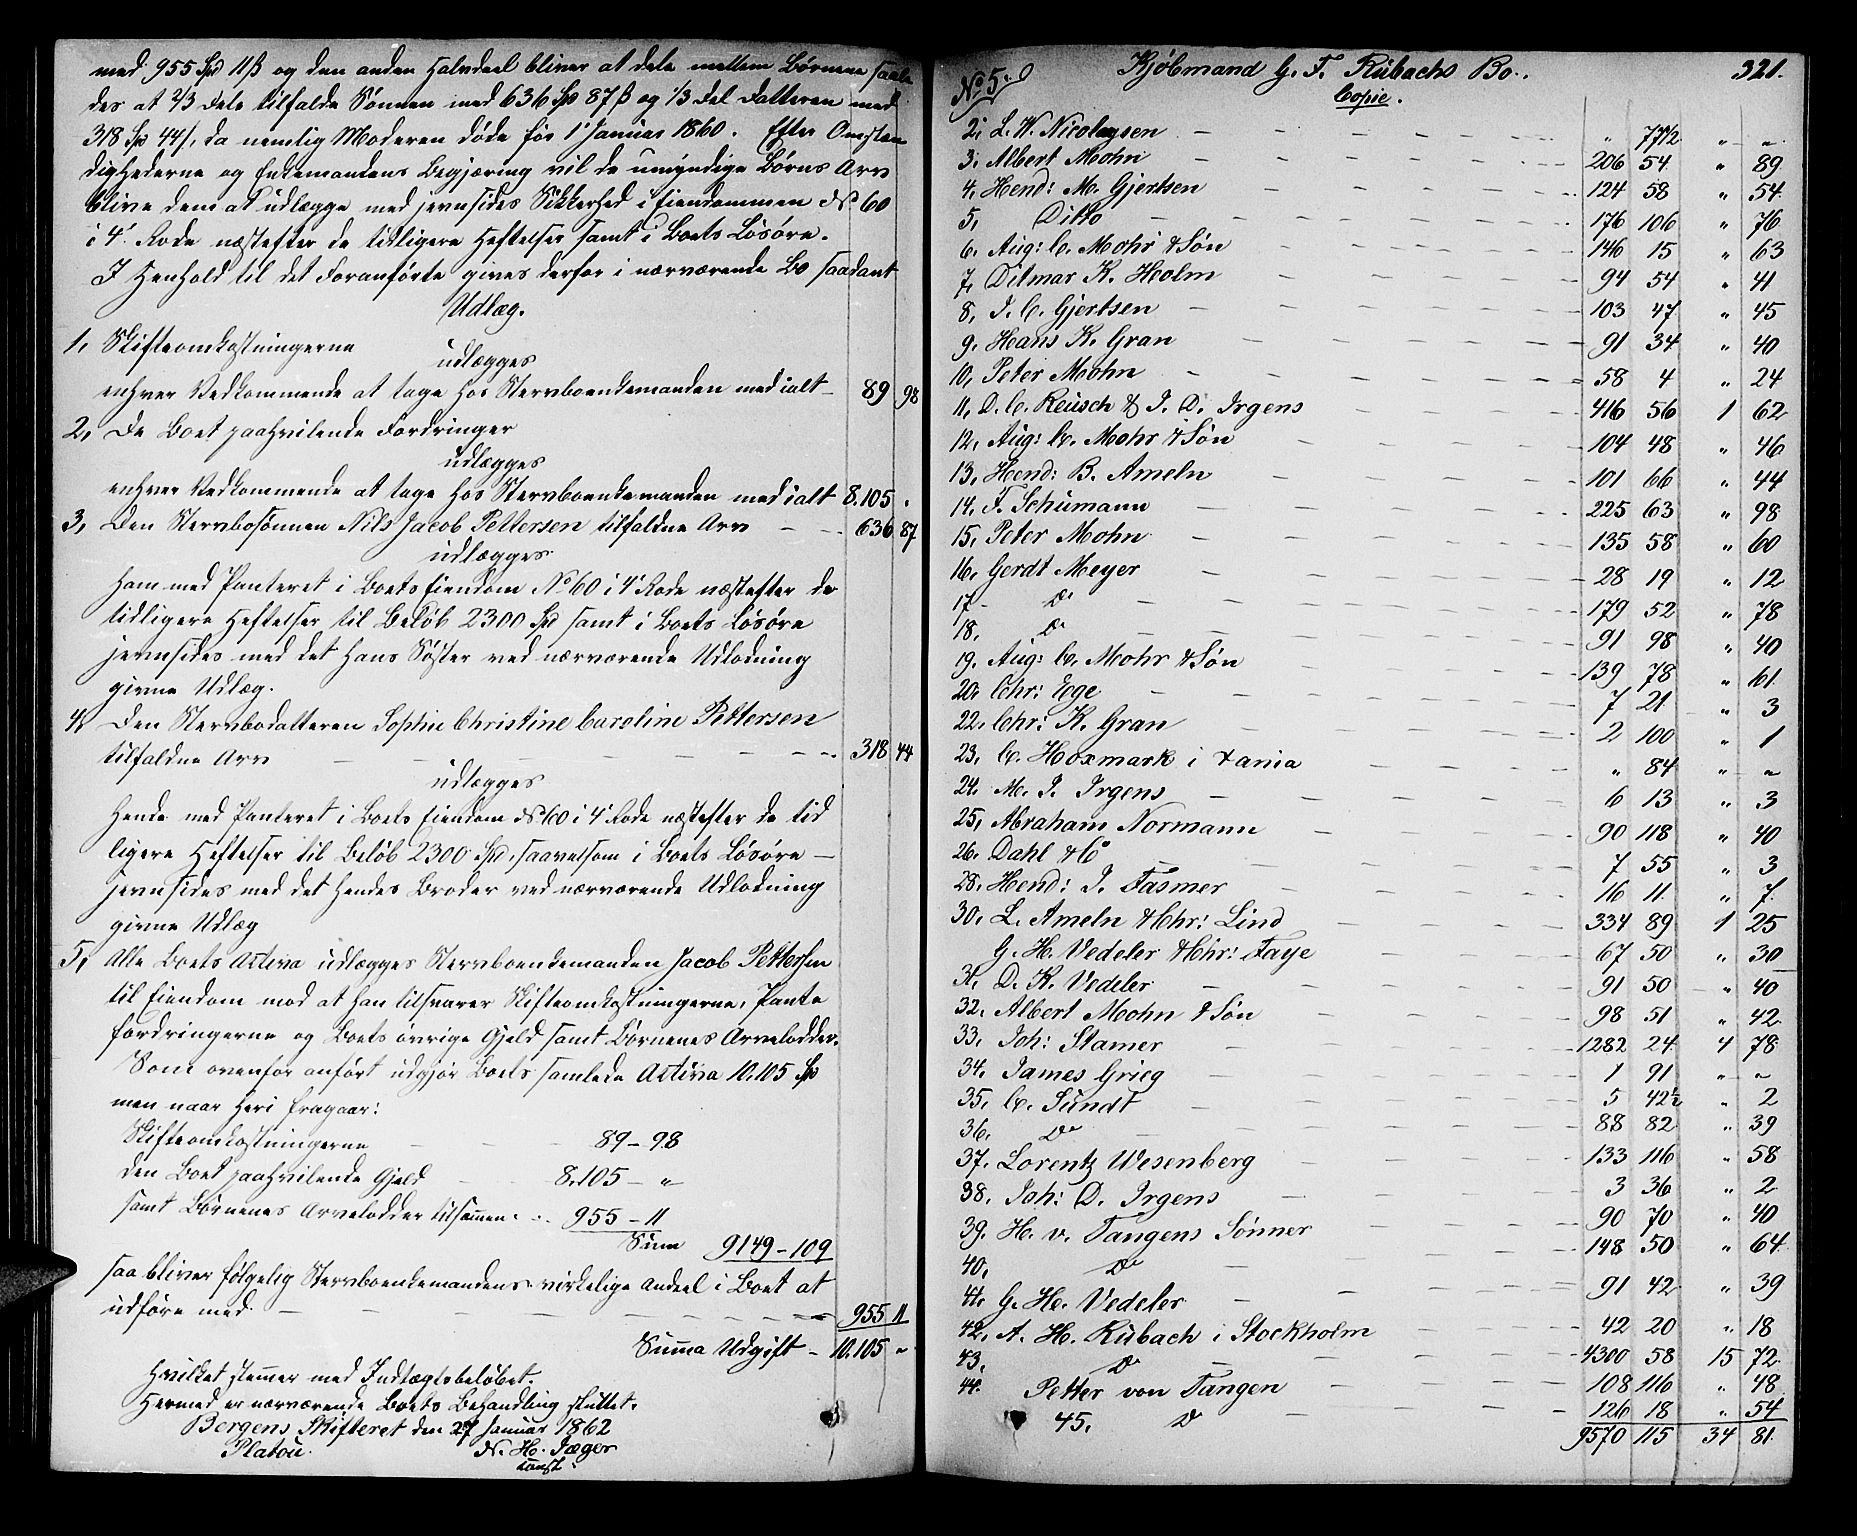 med 955 Spd 11 ß og den anden Halvdeel bliver at dele mellem Børnene saale
des at 2/3 Dele tilfalde Sønnen med 636 Spd 87 ß og 1/3 Del Datteren med
318 Spd 44 ß, da nemlig Moderen døde før 1 Januar 1860. Efter Omsten
dighederne og Enkemandens Begjæring vil de umyndige Børns Arv
blive dem at udlægge med jevnsides Sikkerhed i Eiendommen No 60
i 4. Rode næstefter de tidligere Heftelser samt i Boets Løsøre.
I Henhold til det Foranførte gives derfor i nærværende Bo saadant
Udlæg.
1, Skifteomkostningerne
udlægges
enhver Vedkommende at tage hos Stervboenkemanden med ialt - 89 98
2, De Boet paahvilende Fordringer
udlægges
enhver Vedkommende at tage hos Stervboenkemanden med ialt 8.105 "
3, Den Stervbosønnen Nils Jacob Pettersen tilfaldne Arv - - 636 87
udlægges
ham med Panteret i Boets Eiendom No 60 i 4 Rode næstefter de
tidligere Heftelser til Beløb 2300 Spd samt i Boets Løsøre
jevnsides med det hans Søster ved nærværende Udlodning
givne Udlæg.
4, Den Stervbodatteren Sophie Christine Caroline Pettersen
tilfaldne Arv - - - 318 44
udlægges
hende med Panteret i Boets Eiendom No 60 i 4 Rode næstefter de tid
ligere Heftelser til Beløb 2300 Spd, saavelsom i Boets Løsøre -
jevnsides med det hendes Broder ved nærværende Udlodning
givne Udlæg
5, Alle Boets Activa udlægges Stervboenkemanden Jacob Pettersen
til Eiendom mod at han tilsvarer Skifteomkostningerne, Pante
fordringerne og Boets øvrige Gjeld samt Børnenes Arvelodder.
Som ovenfor anført udgjør Boets samlede Activa 10.105 Spd
men naar heri fragaar:
Skifteomkostningerne - - 89 - 98
den Boet paahvilende Gjeld - - 8.105 - "
samt Børnenes Arvelodder tilsammen - 955 - 11
Sum 9149 - 109
saa bliver følgelig Stervboenkemandens virkelige Andeel i Boet at
udføre med - - - 955 11
Summa Udgift - 10.105 "
hvilket stemmer med Indtægtsbeløbet.
Hermed er nærværende Boets Behandling sluttet.
Bergens Skifteret den 27 Januar 1862
Platou. N. H. Jæger
const.
No 5. Kjøbmand G. F. Rübachs Bo. 321.
Copie.
2. L. W. Nicolaysen - - " 77 1/2 " "
3. Albert Mohn - - 206 54 " 89
4. Hend: M. Gjertsen - - 124 58 " 54
5, Ditto - - 176 106 " 76
6. Aug: C. Mohr & Søn - - 146 15 " 63
7. Ditmar K. Holm - - 94 54 " 41
8, J. C. Gjertsen - - 103 47 " 45
9. Hans K. Gran - - 91 34 " 40
10, Peter Mohn - - 58 4 " 24
11, D. C. Reusch & J. D. Irgens - - 416 56 1 62
12, Aug: C. Mohr & Søn - - 104 48 " 46
13, Hend: B. Ameln - - 101 66 " 44
14. F. Schumann - - 225 63 " 98
15. Peter Mohn - - 135 58 " 60
16, Gerdt Meyer - - 28 19 " 12
17 - Do - - 179 52 " 78
18. Do - - 91 98 " 40
19. Aug: C. Mohr & Søn - - 139 78 " 61
20. Chr: Ege - - 7 21 " 3
22. Chr: K. Gran - - 2 100 " 1
23. C. Hoxmark i Xania - - " 84 " "
24. M. J. Irgens - - 6 13 " 3
25, Abraham Normann - - 90 118 " 40
26. Dahl & Co - - 7 55 " 3
28. Hend: J. Fasmer - - 16 11 " 7
30, L. Ameln & Chr: Lind - - 334 89 1 25
G. H. Vedeler & Chr: Faye - - 67 50 " 30
31. D. K. Vedeler - - 91 50 " 40
32. Albert Mohn & Søn - - 98 51 " 42
33. Joh: Stamer - - 1282 24 4 78
34. James Grieg - - 1 91 " "
35. C. Sundt - - 5 42 1/2 " 2
36. Do - - 88 82 " 39
37. Lorentz Wesenberg - - 133 116 " 58
38. Joh: D. Irgens - - 3 36 " 2
39. H. v. Tangens Sønner - - 90 70 " 40
40. Do - - 148 50 " 64
41. G. H. Vedeler - - 91 42 " 39
42. A. H. Rübach i Stockholm - - 42 20 " 18
43. Do - - 4300 58 15 72
44. Petter von Tangen - - 108 116 " 48
45. Do - - 126 18 " 54
9570 115 34 81